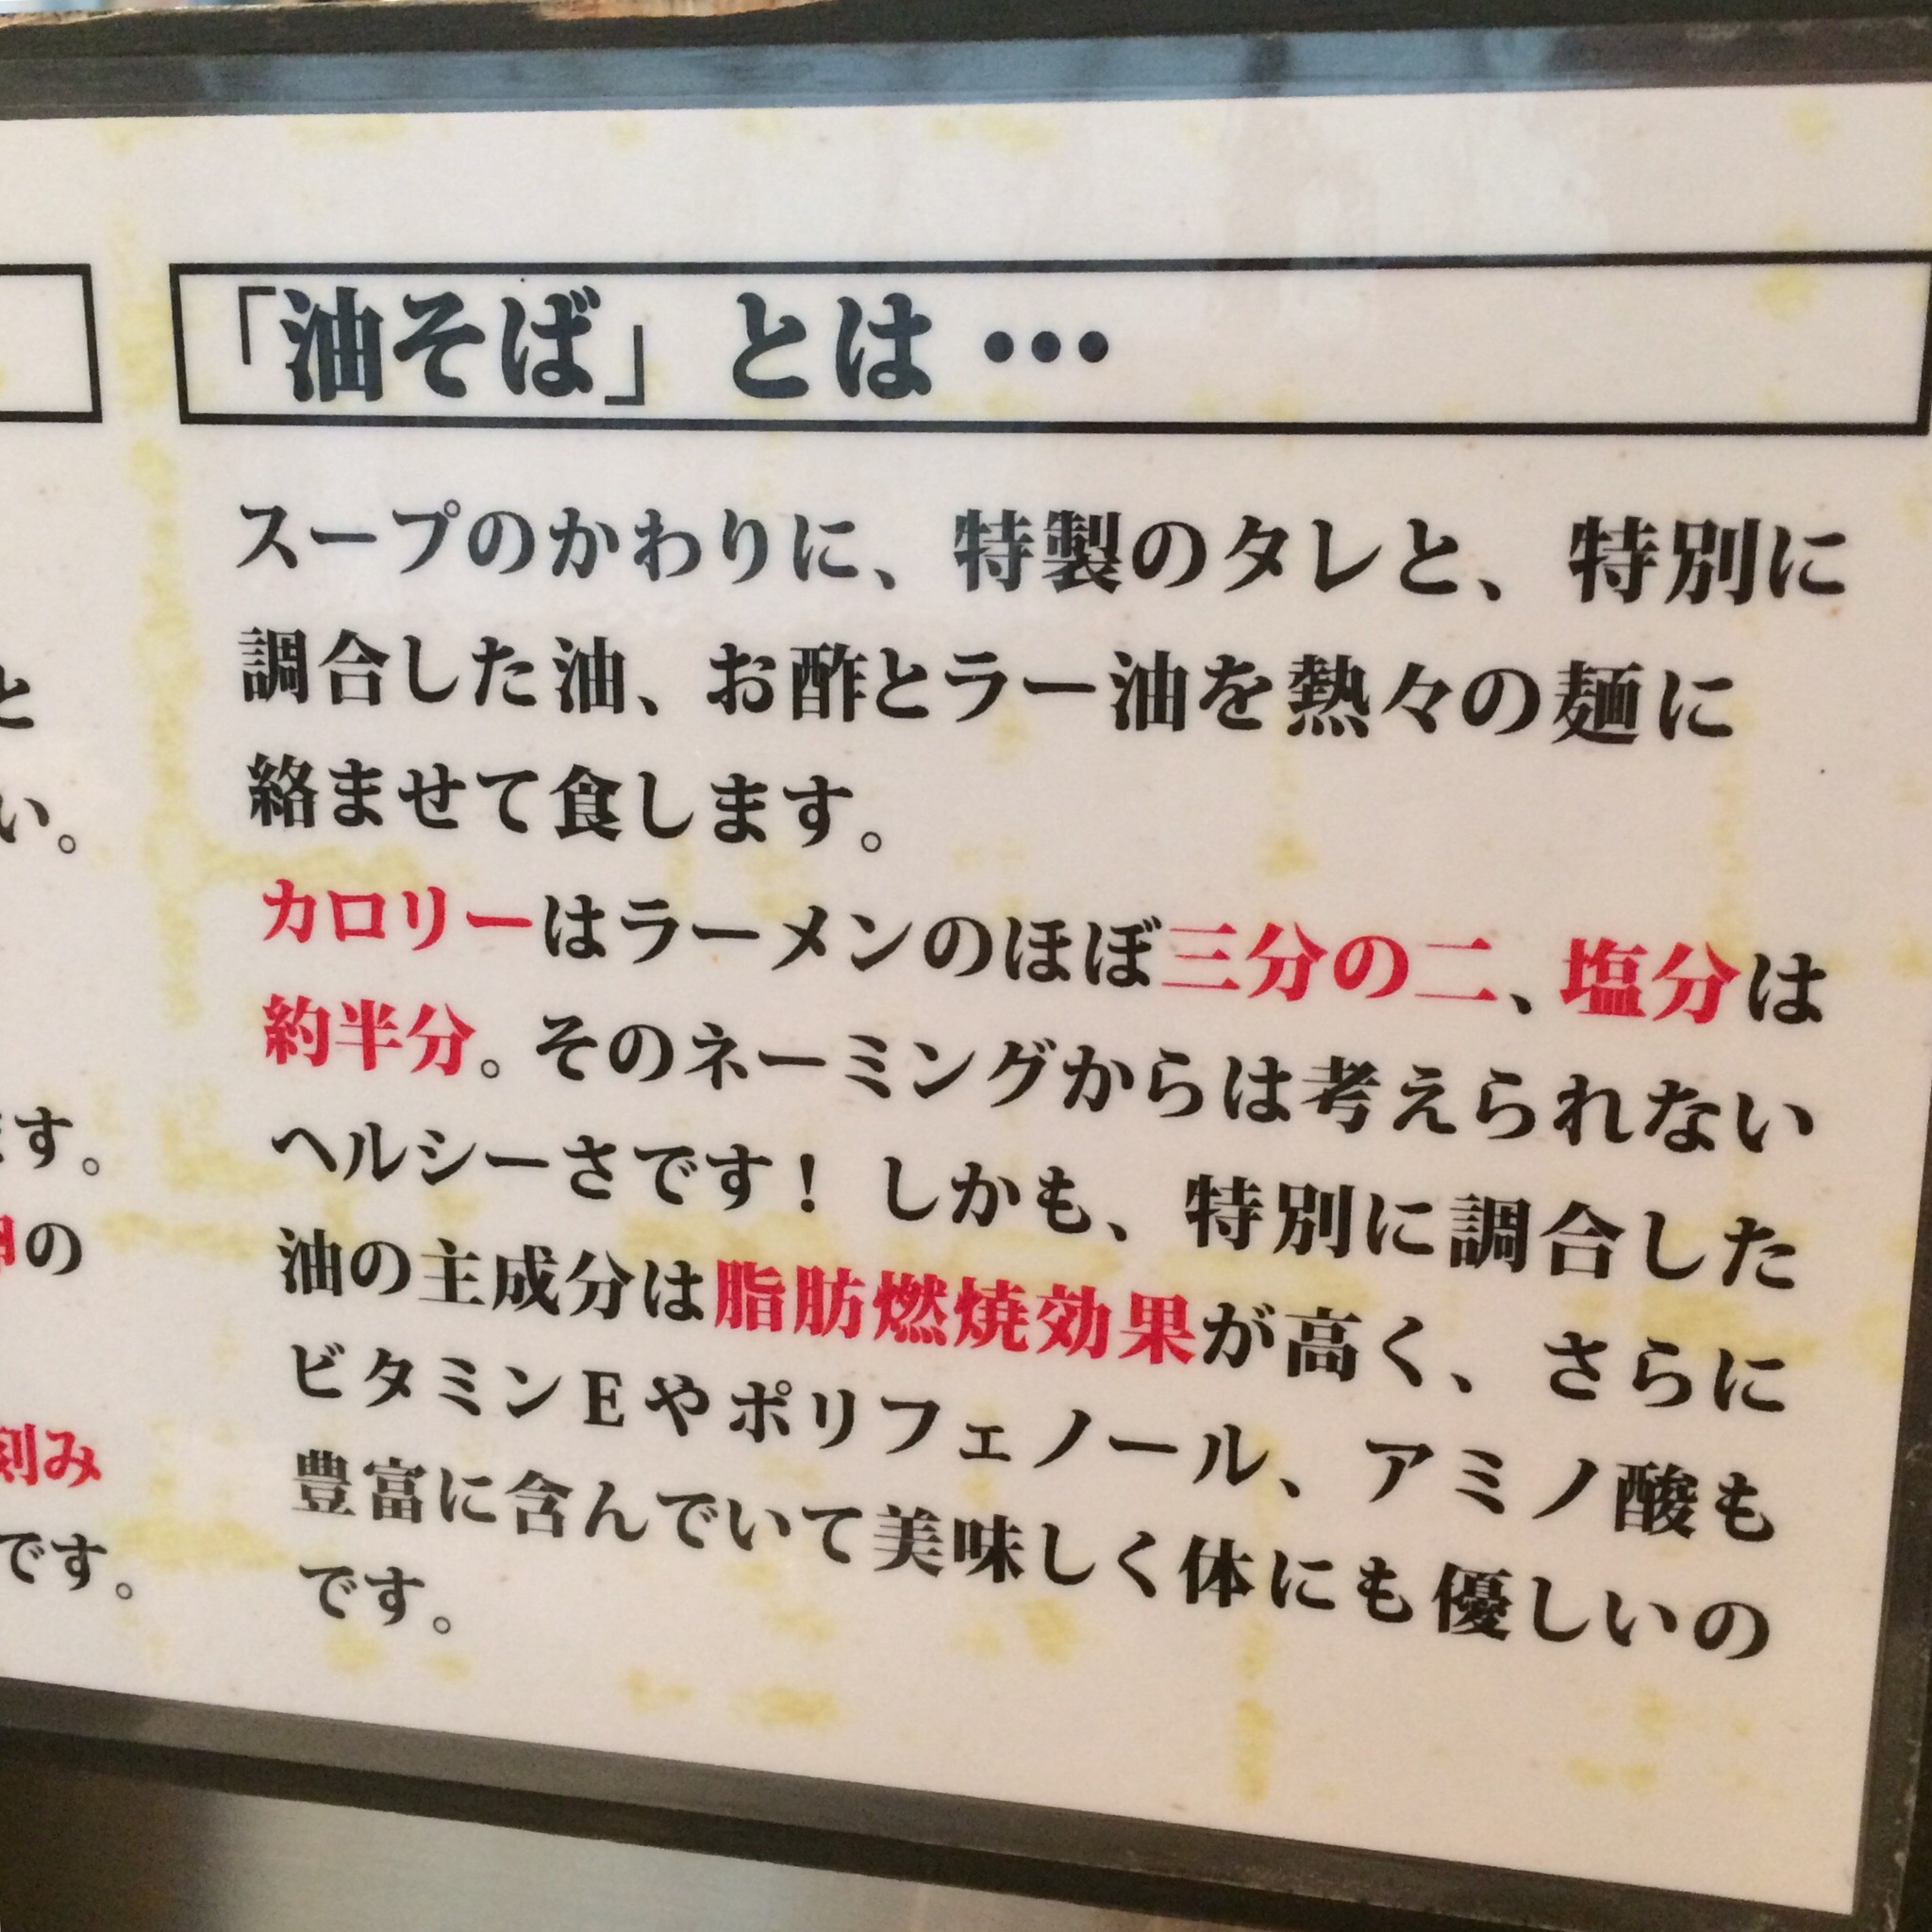 「油そば」とは…
スープのかわりに、特製のタレと、特別に
調合した油、お酢とラー油を熱々の麺に
絡ませて食します。
カロリーはラーメンのほぼ三分の二、塩分は
約半分。そのネーミングからは考えられない
ヘルシーさです！しかも、特別に調合した
油の主成分は脂肪燃焼効果が高く、さらに
ビタミンEやポリフェノール、アミノ酸も
豊富に含んでいて美味しく体にも優しいの
です。
と
い。
ます。
の
刻み
です。